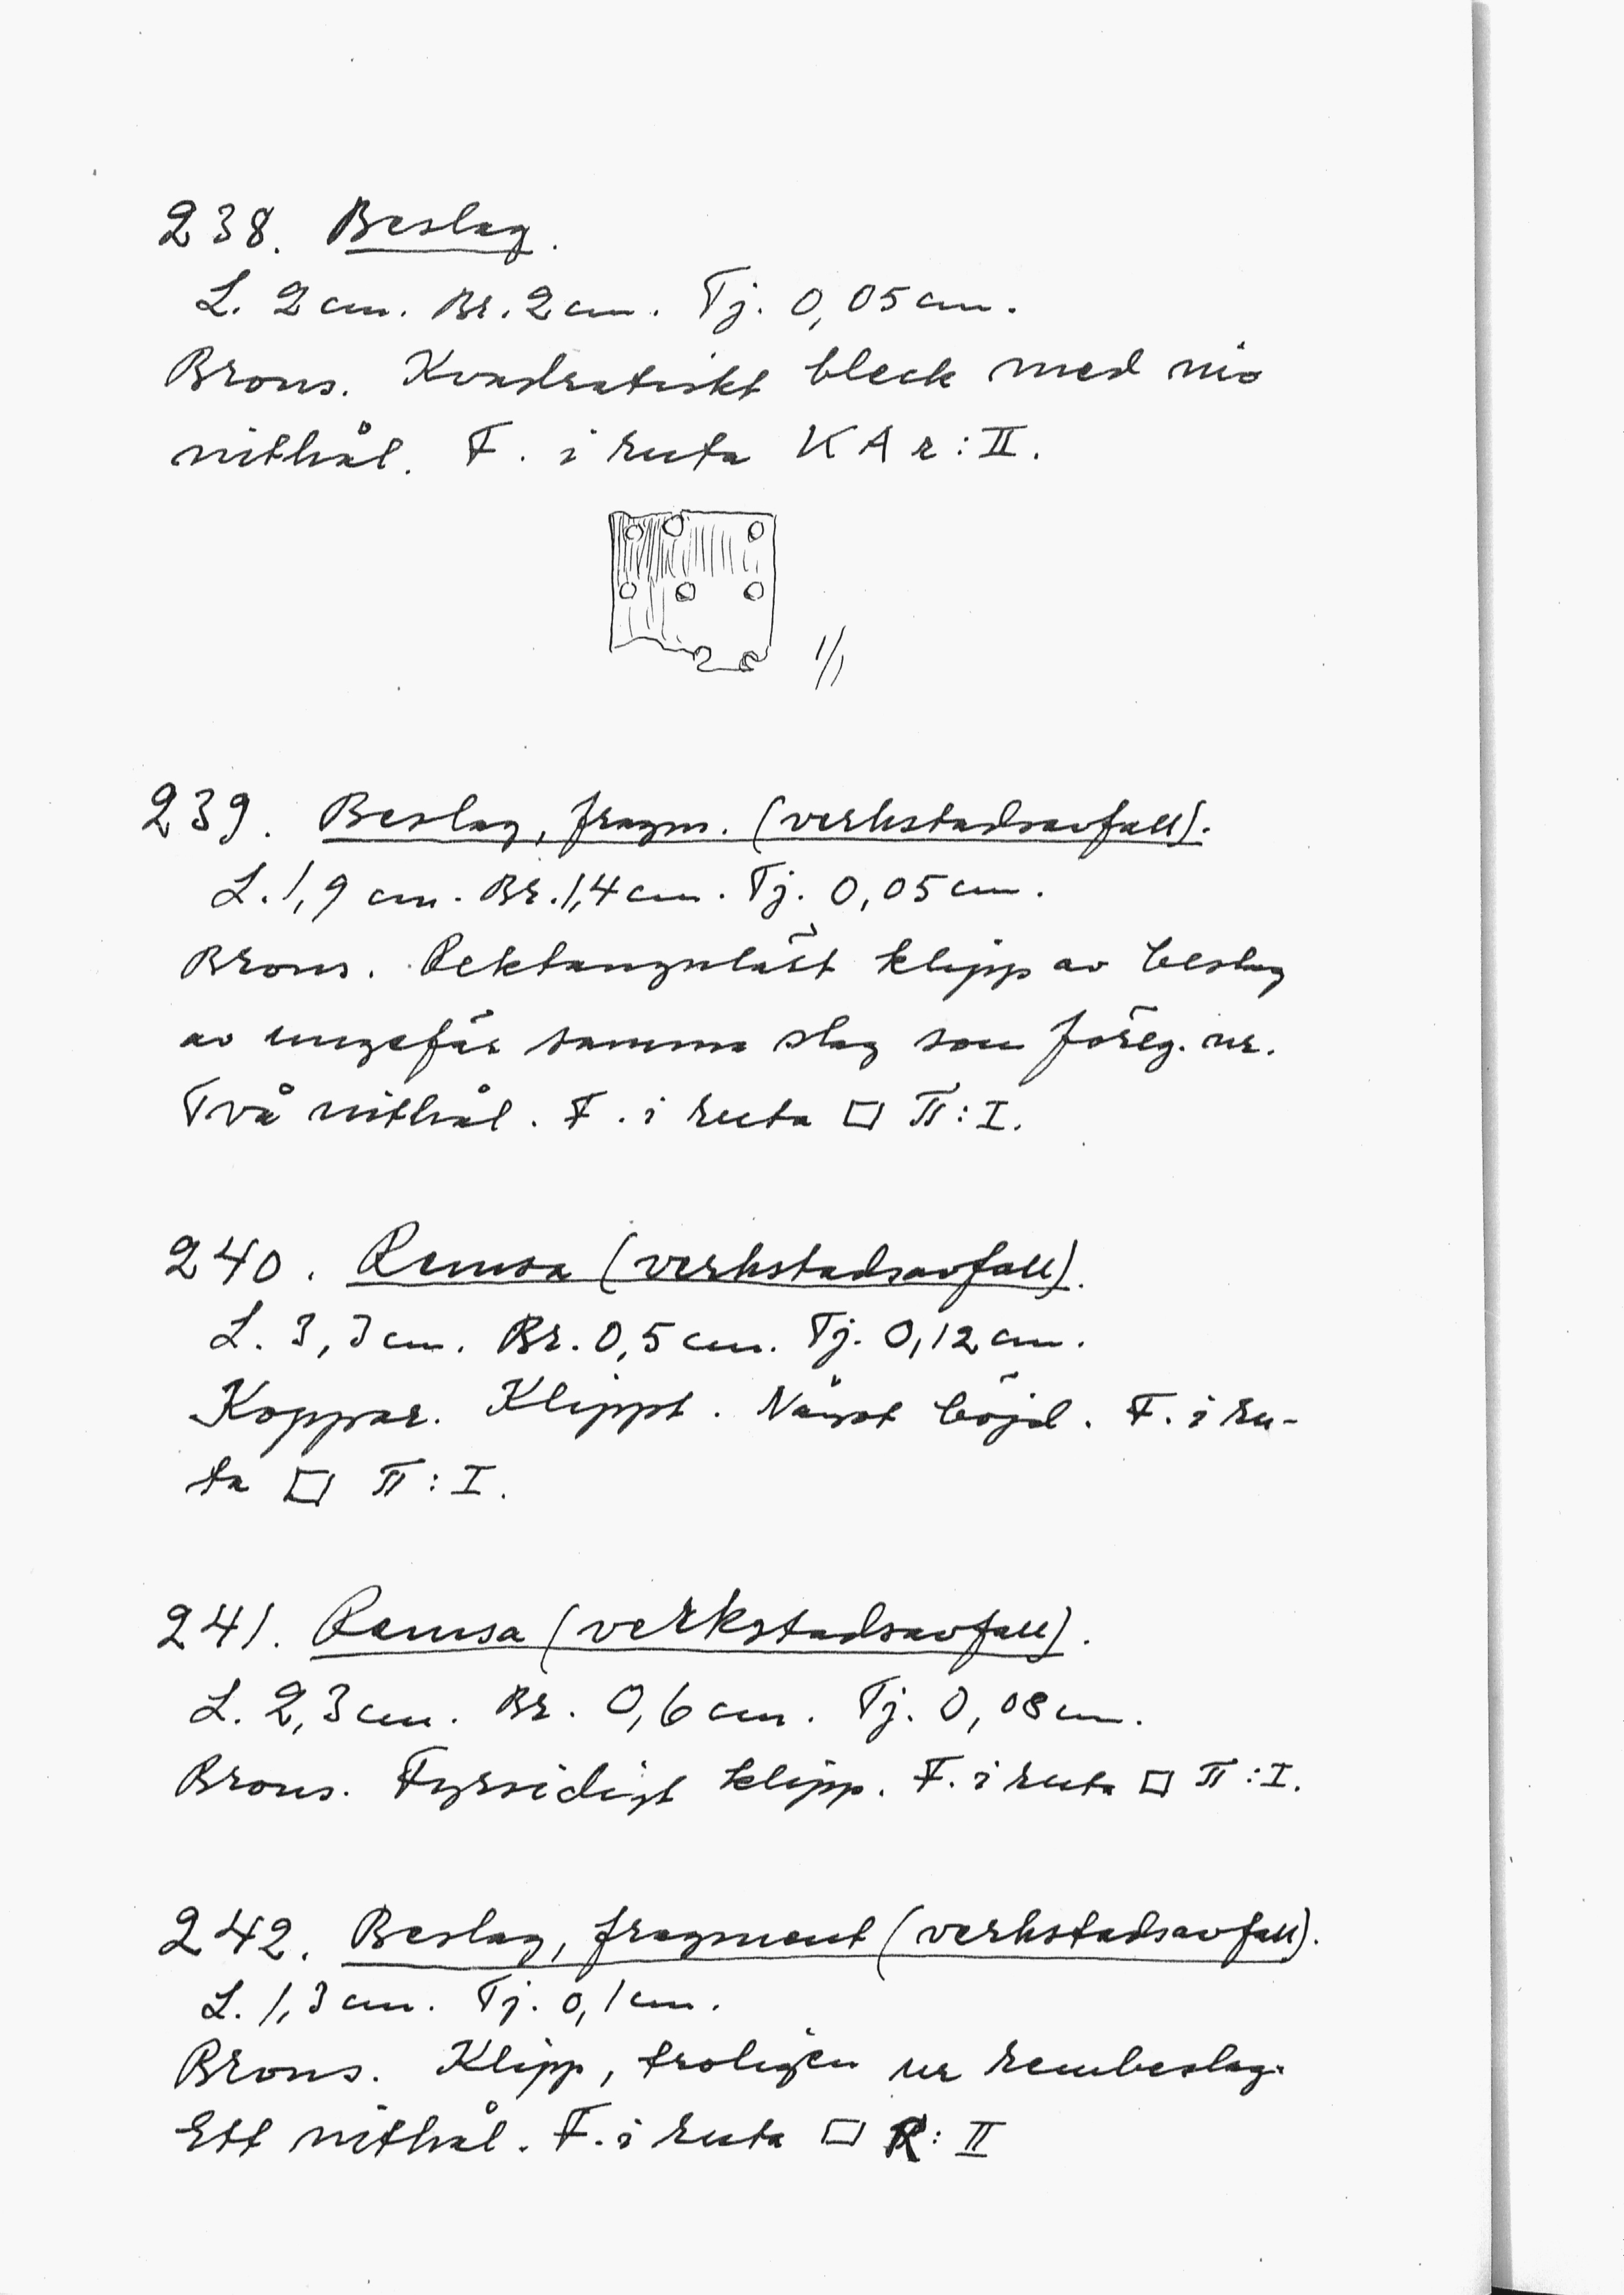 238. Beslag.
L. 2 cm. Br. 2 cm. Tj. 0,05 cm.
Brons. Kvadratiskt bleck med nio
nithål. F. i ruta K A r : II.
1/1
239. Beslag, fragm. (verkstadsavfall).
L. 1,9 cm. Br. 1,4 cm. Tj. 0,05 cm.
Brons. Rektangulärt klipp av beslag
av ungefär samma slag som föreg. nr.
Två nithål. F. i ruta □ π : I.
240. Remsa (verkstadsavfall).
L. 3,3 cm. Br. 0,5 cm. Tj. 0,12 cm.
Koppar. Klippt. Något böjd. F. i ru-
ta □ π : I.
241. Remsa (verkstadsavfall).
L. 2,3 cm. Br. 0,6 cm. Tj. 0,08 cm.
Brons. Fyrsidigt klipp. F. i ruta □ π : I.
242. Beslag, fragment (verkstadsavfall).
L. 1,3 cm. Tj. 0,1 cm.
Brons. Klipp, troligen ur rembeslag.
Ett nithål. F. i ruta □ R : II